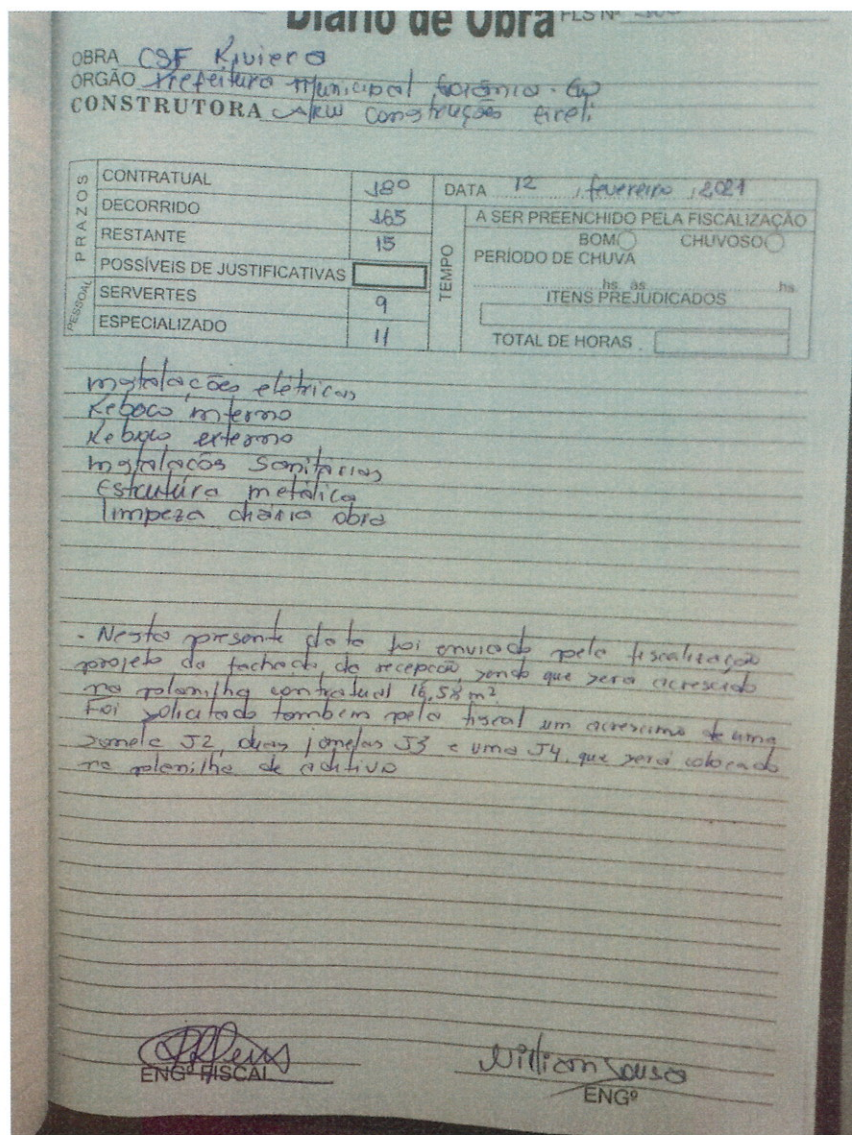 Diário de Obra FLS Nº
OBRA CSF Riviera
ÓRGÃO Prefeitura Municipal Goiânia - Go
CONSTRUTORA Construções Eireli
PRAZOS
CONTRATUAL 180
DECORRIDO 165
RESTANTE 15
POSSÍVEIS DE JUSTIFICATIVAS
PESSOAL
SERVERTES 9
ESPECIALIZADO 11
DATA 12 , fevereiro , 2021
TEMPO
A SER PREENCHIDO PELA FISCALIZAÇÃO
BOM CHUVOSO
PERÍODO DE CHUVA
hs. às hs.
ITENS PREJUDICADOS
TOTAL DE HORAS
instalações elétricas
Reboco interno
Reboco externo
instalações Sanitárias
Estrutura metálica
limpeza diária obra
- Nesta presente data foi enviado pela fiscalização
projeto da fachada da recepção, sendo que será acrescido
na planilha contratual 16,58 m²
Foi solicitado também pelo fiscal um acrescimo de uma
janela J2, duas janelas J3 e uma J4, que será colocado
na planilha de aditivo
ENGº FISCAL
Willian Sousa
ENGº